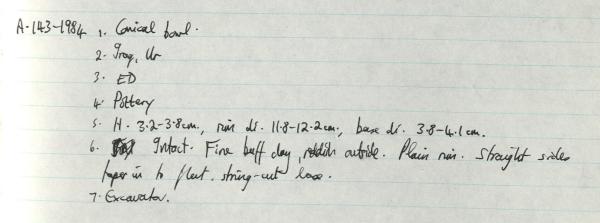 A.143-1984 1. Conical bowl.
2. Iraq, Ur
3. ED
4. Pottery
5. H. 3.2-3.8cm., rim di. 11.8-12.2cm., base di. 3.8-4.1cm.
6. Intact. Fine buff clay, reddish outside. Plain rim. Straight sides
taper in to flat, string-cut base.
7. Excavator.